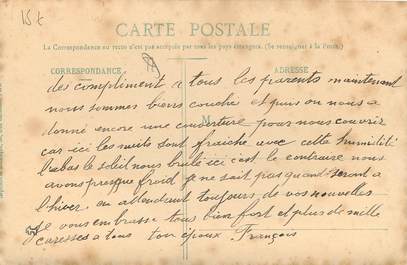 15 t
CARTE POSTALE
La Correspondance au recto n'est pas acceptée par tous les pays étrangers. (Se renseigner à la Poste.)
CORRESPONDANCE ADRESSE
des compliment a tous les parents maintenant
nous sommes biens couches et puis on nous a
donné encore une couverture pour nous couvrir
M
car ici les nuits sont fraiche avec cette humidité
labas le soleil nous brulé ici c'est le contraire nous
avons presque froid je ne sait pas quand seront a
l'hiver en attendant toujours de vos nouvelles
Je vous embrasse tous bien fort et plus de mille
caresses a tous ton époux François